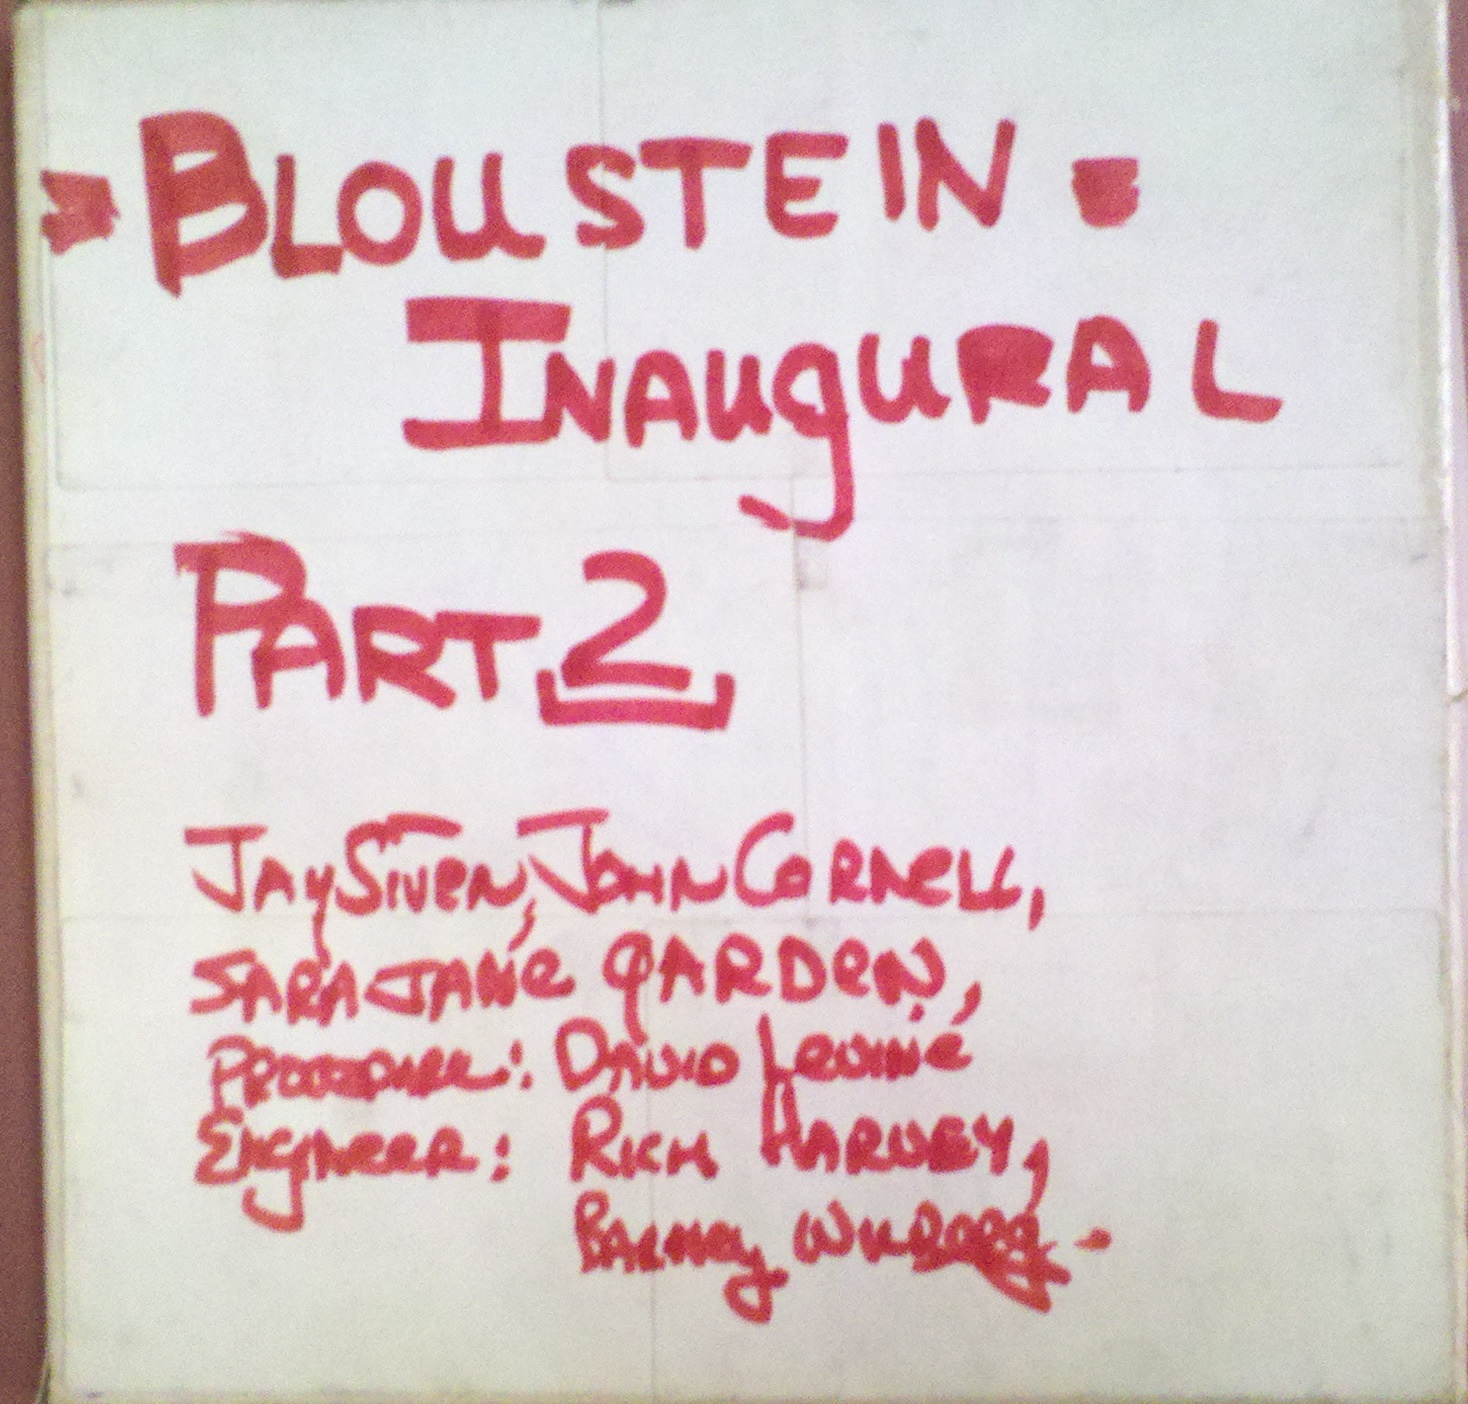 BLOUSTEIN
INAUGURAL
PART 2
JAY SIVEN, JOHN CORNELL,
SARA JANE GARDEN,
DAVID LEVINE
ENGINEER: RICH HARVEY,
BARNEY